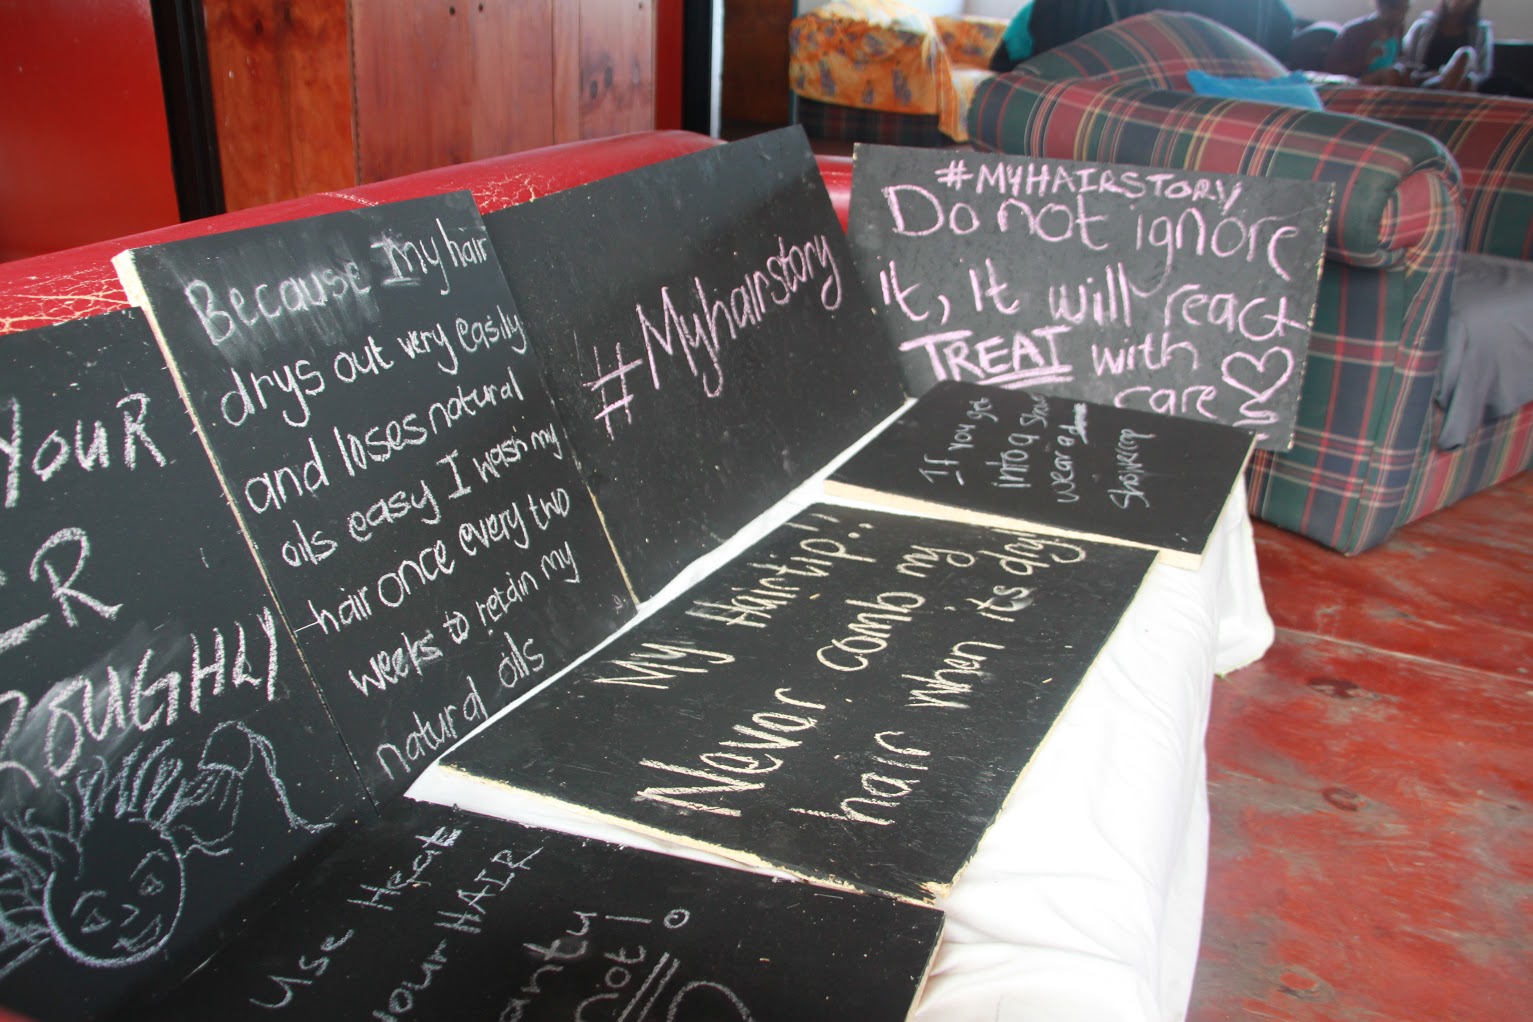 YouR
ROUGHLY
Because My hair
drys out very easily
and loses natural
oils easy I wash my
hair once every two
weeks to retain my
natural oils
#Myhairstory
#MYHAIRSTORY
Do not ignore
it, It will react
TREAT with
care
If you get
into a
wear a
Showercap
My Hairtip!!
Never comb my
hair when its dry
Use Heat
your HAIR
not!